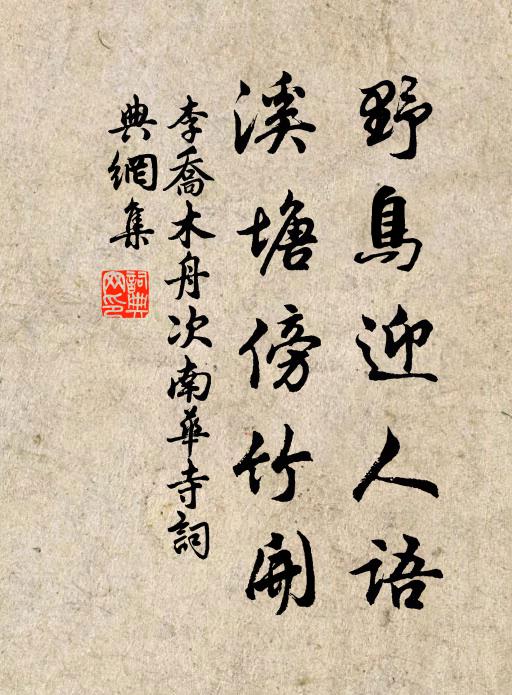 野鳥迎人語
溪塘傍竹開
李喬木舟次南華寺詞
典網集
詞典
网印